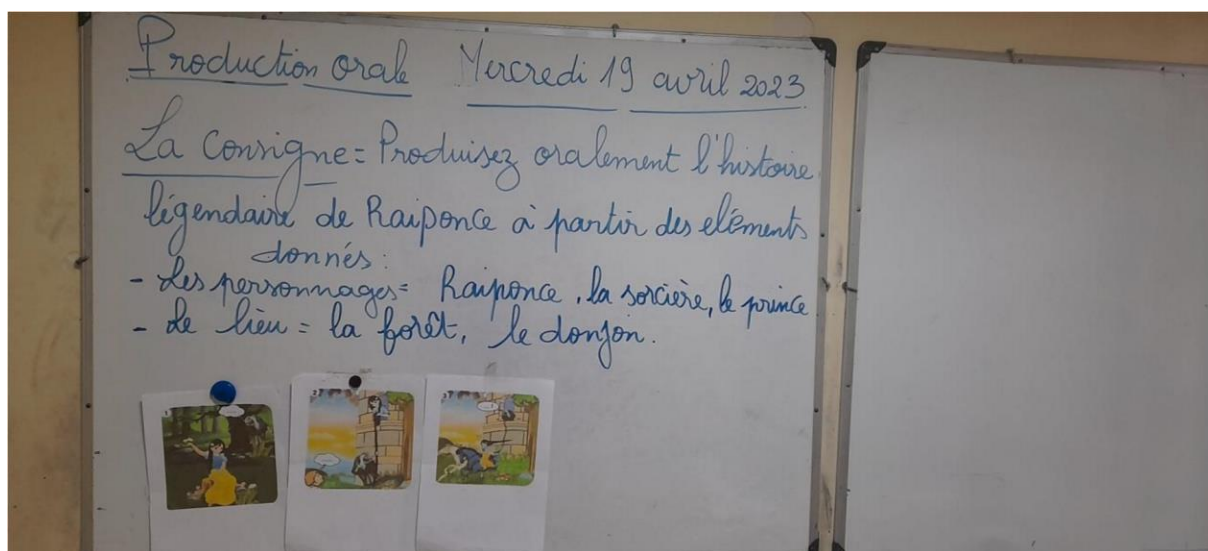 Production orale Mercredi 19 avril 2023
La consigne = Produisez oralement l'histoire
légendaire de Raiponce à partir des eléments
donnés :
- Les personnages = Raiponce, la sorcière, le prince
- Le lieu = la forêt, le donjon.
1
2
3